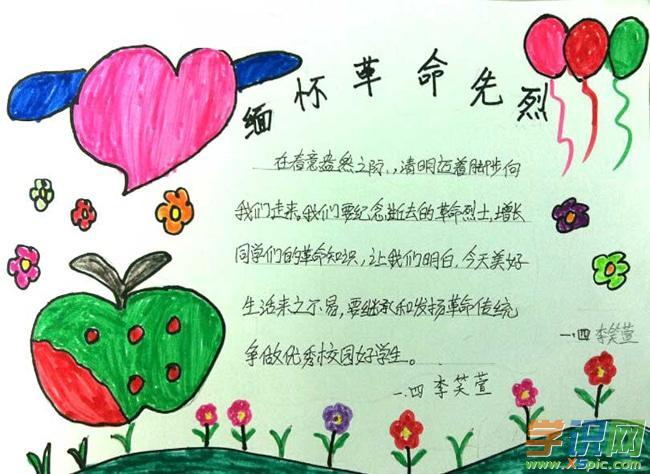 缅怀革命先烈
在春意盎然之际，清明迈着脚步向
我们走来，我们要纪念逝去的革命烈士，增长
同学们的革命知识，让我们明白，今天美好
生活来之不易，要继承和发扬革命传统
争做优秀校园好学生。
一.四 李笑萱
一.四 李笑萱
学识网
www.XSpic.com